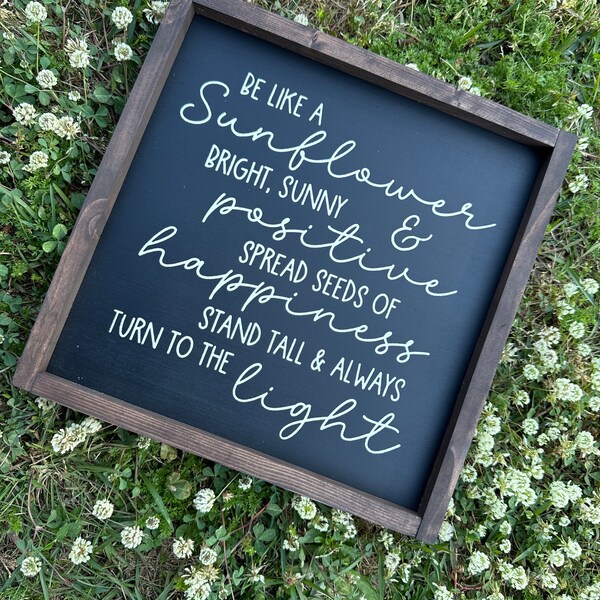 BE LIKE A
Sunflower
BRIGHT, SUNNY &
positive
SPREAD SEEDS OF
happiness
STAND TALL & ALWAYS
TURN TO THE light